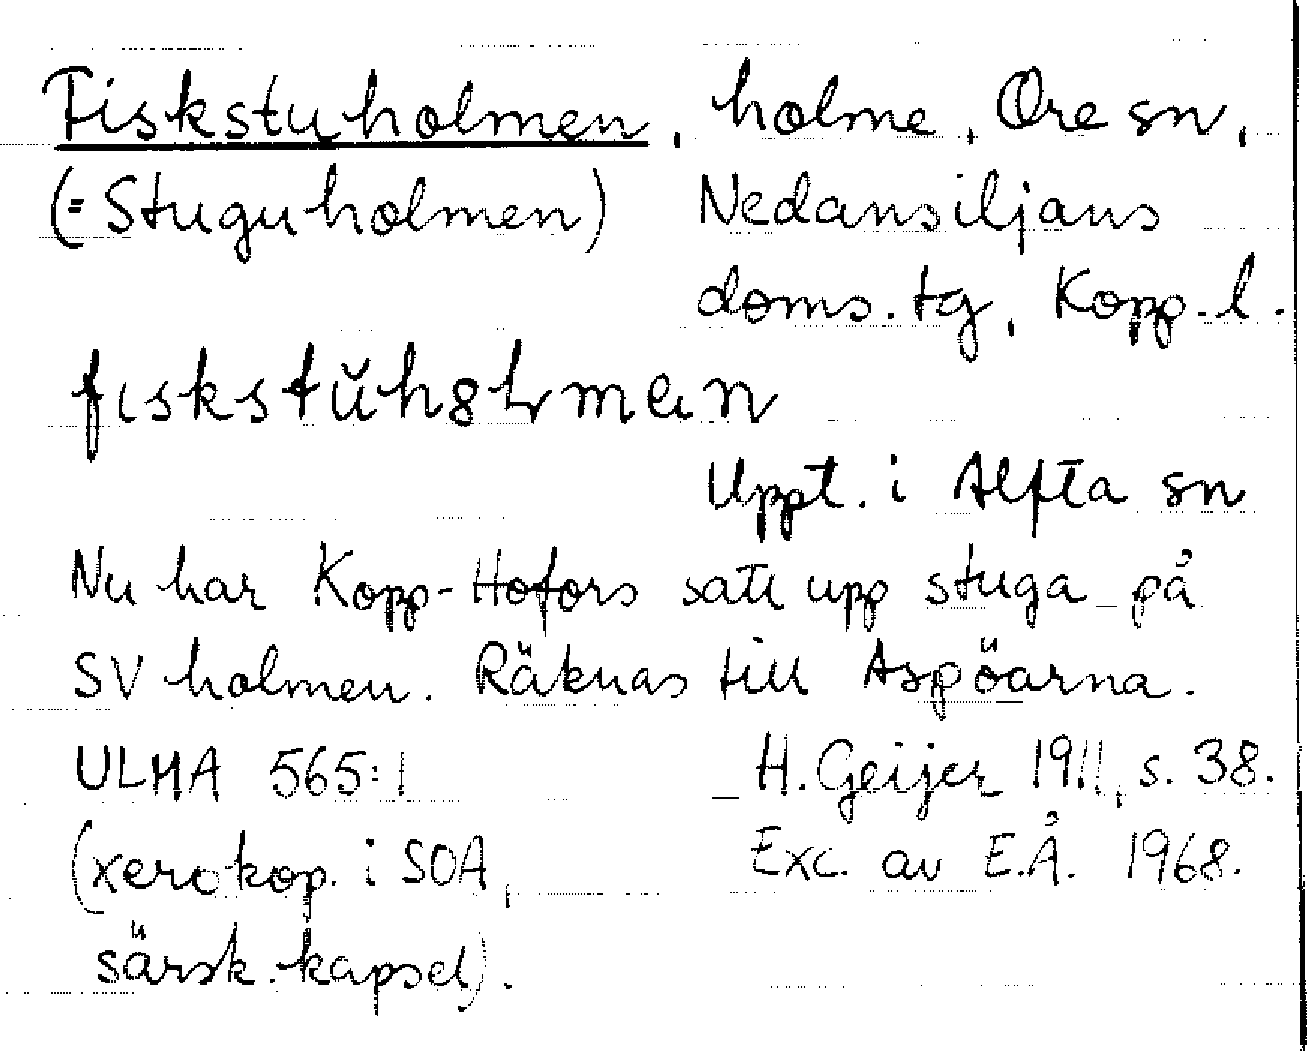 Fiskstuholmen, holme, Ore sn,
(= Stuguholmen) Nedansiljans
doms.tg, Kopp. l.
Uppt. i Alfta sn
Nu har Kopp-Hofors satt upp stuga på
SV holmen. Räknas till Aspöarna.
ULMA 565:1 H. Geijer 1911, s. 38.
(xerokop. i SOA, Exc. av E.Å. 1968.
särsk. kapsel).